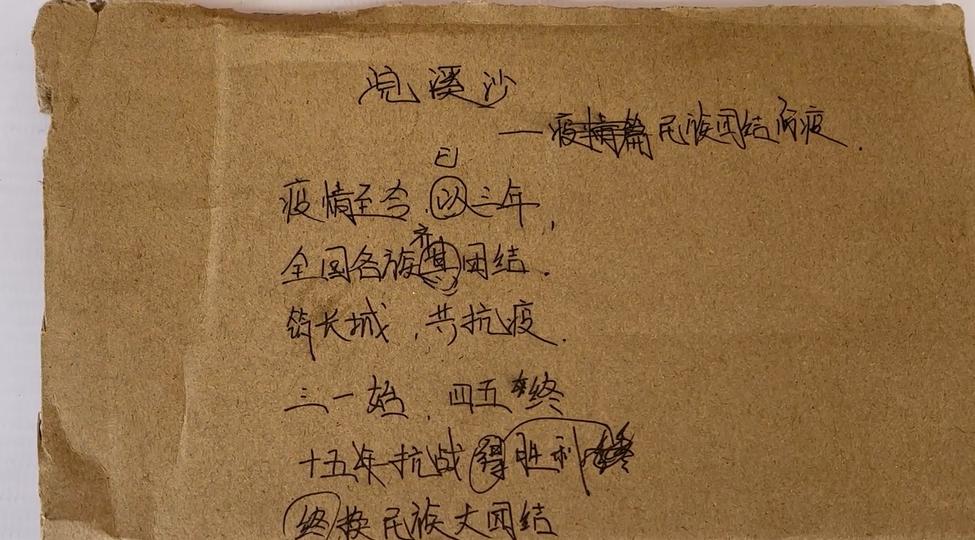 浣溪沙
—疫情篇民族团结防疫.
已
疫情至今以三年,
齐
全国各族其团结.
筑长城,共抗疫.
三一始,四五终
十五年抗战得胜利终
终换民族大团结